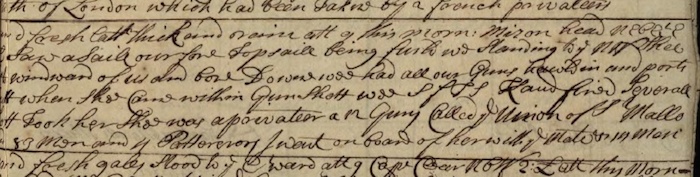 th of London which had been taken by 2 french privateers
d fresh latt thick and rain att 9 this morn: Mizon head
Saw a Saile our fore Topsaile being furld we Standing by
windward of us and bore Downe wee had all our Guns in and ports
tt when She Came within Gun Shott wee and fired Severall
tt Took her She was a privateer a 2 Guns Called ye Union of St Mallo
83 Men and 4 Pattereroes I went on board of her with ye Mate & 14 Men
nd fresh gales Stood by att 9 Cape Clear NbW 2 L att this Morn